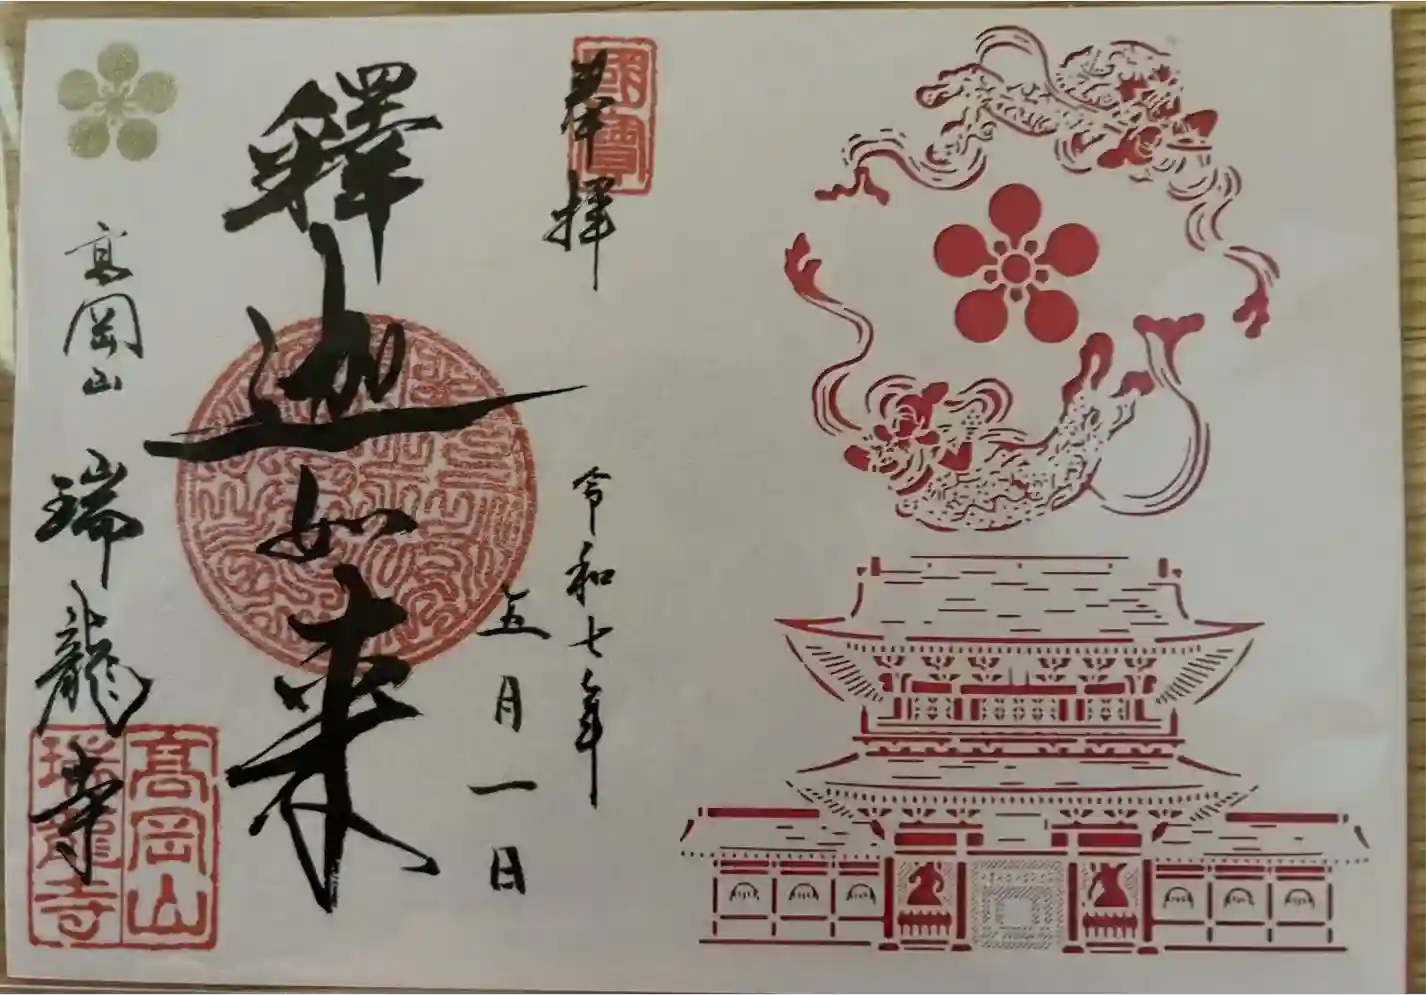 國寶
奉拝
令和七年
五月一日
釋迦如来
高岡山
瑞龍寺
髙岡山
瑞龍寺